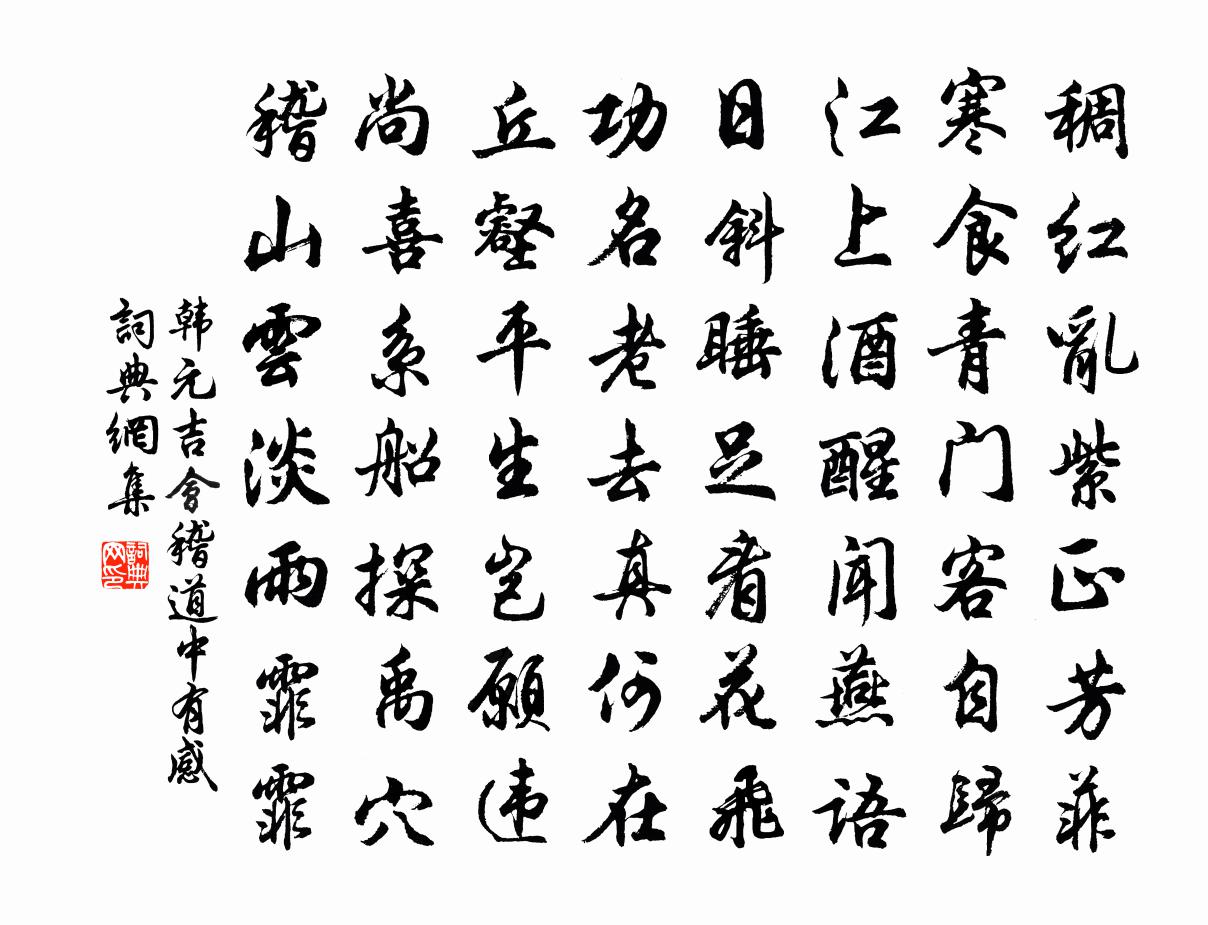 稠红亂紫正芳菲
寒食青门客自歸
江上酒醒闻燕语
日斜睡足看花飛
功名老去真何在
丘壑平生岂願违
尚喜系船探禹穴
稽山雲淡雨霏霏
韩元吉會稽道中有感
詞典網集
詞典
网印